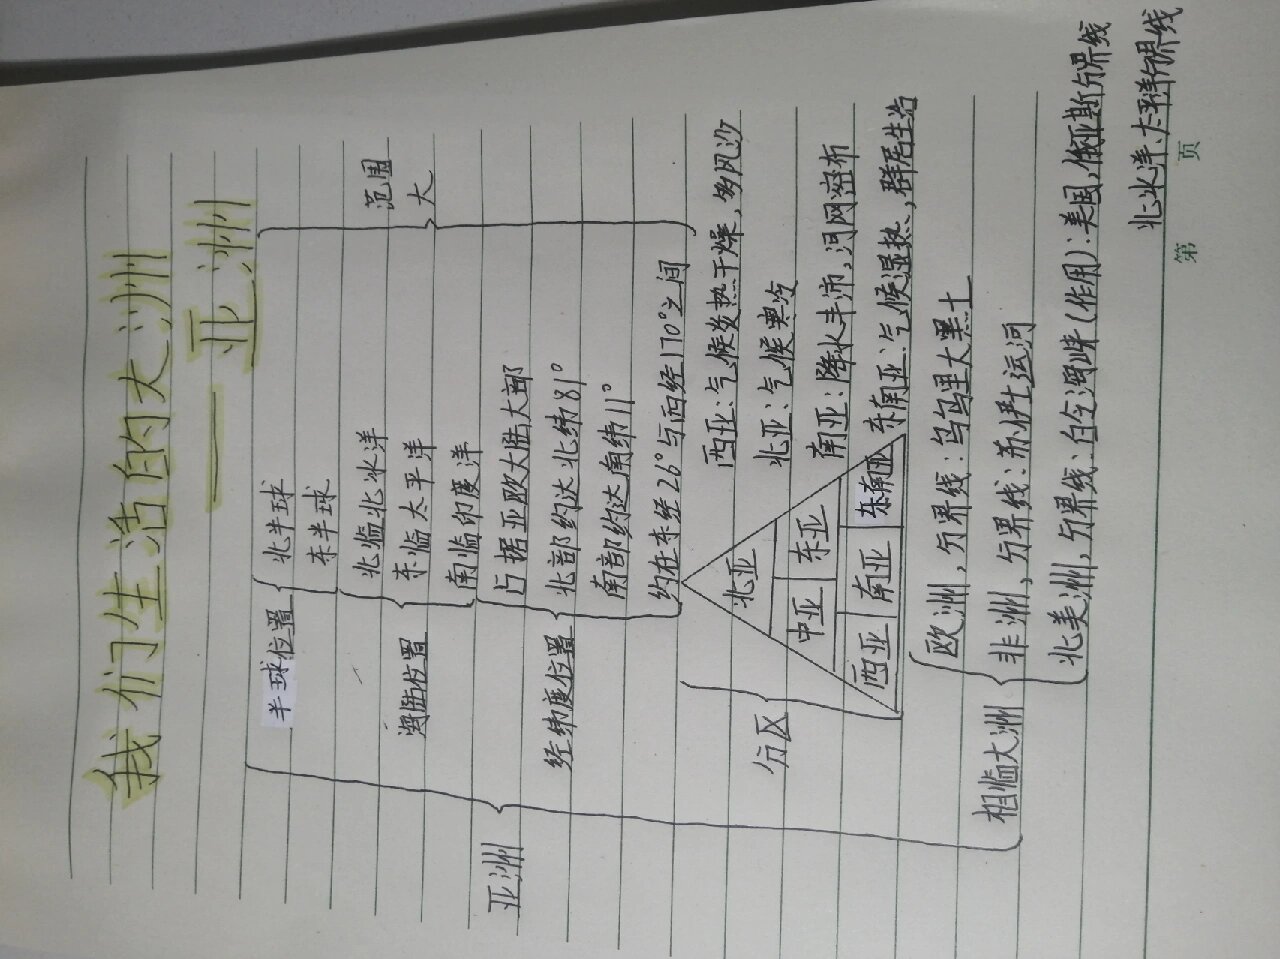 我们生活的大洲
——亚洲
亚洲
半球位置
北半球
东半球
海陆位置
北临北冰洋
东临太平洋
南临印度洋
经纬度位置
占据亚欧大陆大部
北部约达北纬81°
南部约达南纬11°
约在东经26°与西经170°之间
范围
大
分区
北亚
中亚 东亚
西亚 南亚 东南亚
西亚：气候炎热干燥，多风沙
北亚：气候寒冷
南亚：降水丰沛，河网密布
东南亚：气候湿热，群居生活
相临大洲
欧洲，分界线：乌乌里大黑土
非洲，分界线：苏伊士运河
北美洲，分界线：白令海峡（作用）：美国，俄亚斯分界线
北冰洋、太平洋分界线
第 页